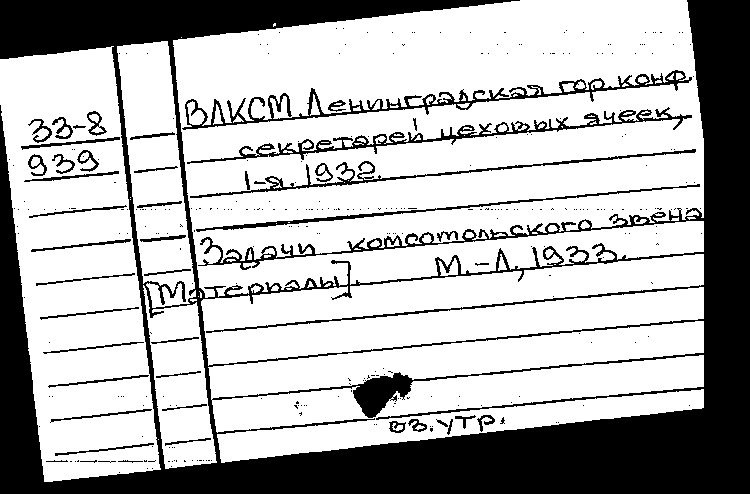 33-8
939
ВЛКСМ. Ленинградская гор. конф.
секретарей цеховых ячеек,
1-я. 1932.
Задачи комсомольского звена
[Материалы]. М.-Л, 1933.
экз. утр.